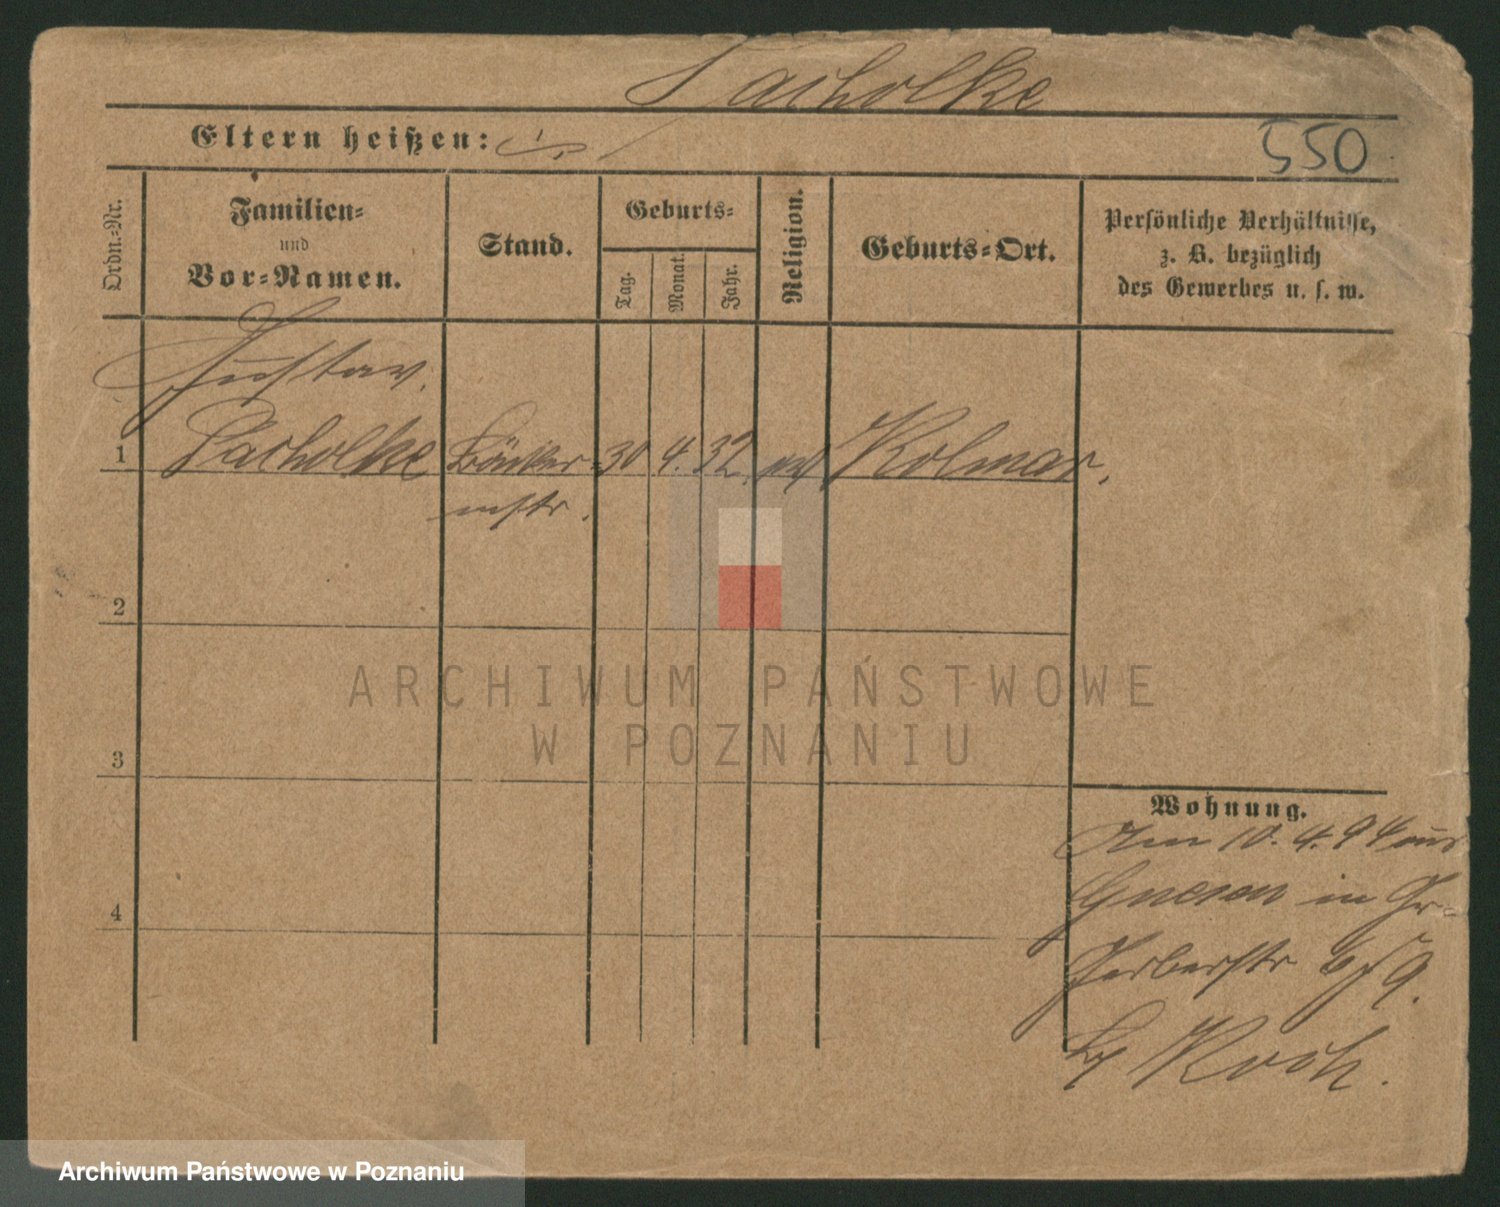 Pacholke
Eltern heißen:
550
Ordn.-Nr.
Familien-
und
Vor-Namen.
Stand.
Geburts-
Tag.
Monat.
Jahr.
Religion.
Geburts-Ort.
Persönliche Verhältnisse,
z. B. bezüglich
des Gewerbes u. s. w.
Gustav.
1 Pacholke Böttcher 30 4. 32 Kolmar.
mstr.
2
3
4
Wohnung.
Am 10. 4. 94 aus
Gnesen in Gr-
Gerberstr 6/9.
by Koch.
ARCHIWUM PAŃSTWOWE
W POZNANIU
Archiwum Państwowe w Poznaniu